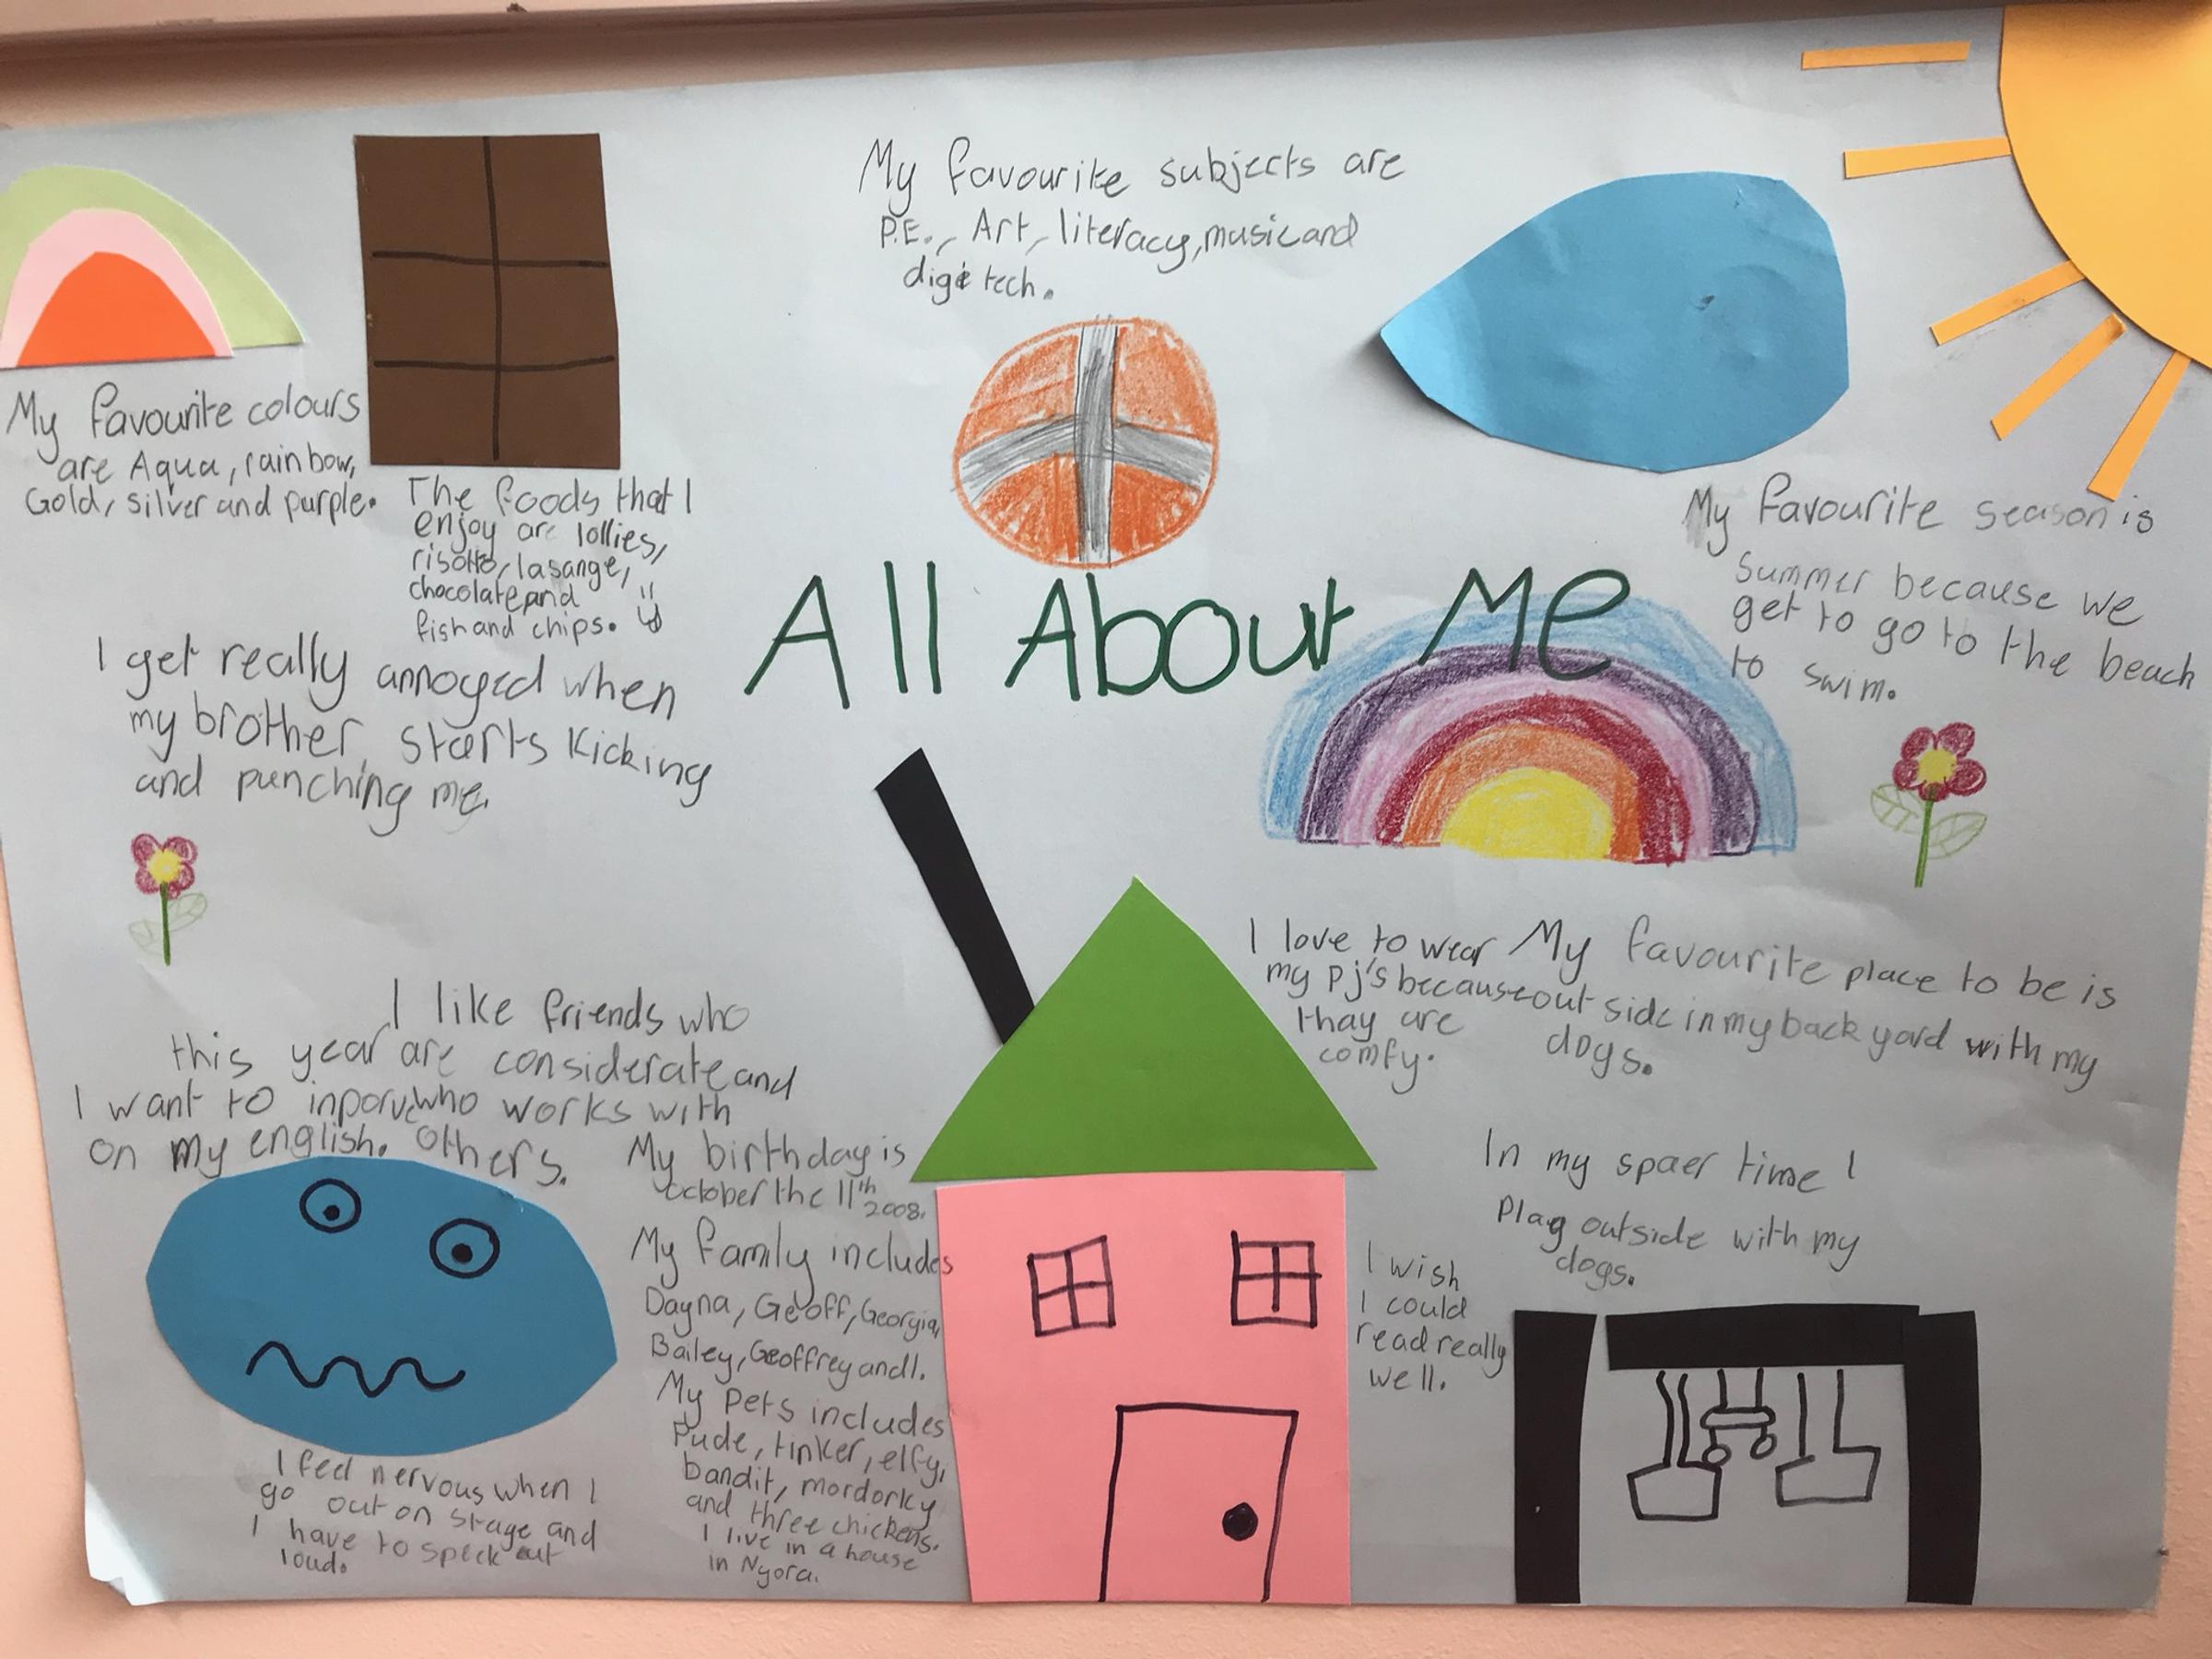 My favourite subjects are
P.E., Art, literacy, music and
digi tech.
My favourite colours
are Aqua, rainbow,
Gold, silver and purple.
The foods that I
enjoy are lollies,
risotto, lasange,
chocolate and
fish and chips.
My favourite season is
Summer because we
get to go to the beach
to swim.
All About Me
I get really annoyed when
my brother starts kicking
and punching me.
I love to wear
my pj's because
thay are
comfy.
My favourite place to be is
out side in my back yard with my
dogs.
I like friends who
are considerate and
who works with
others.
this year
I want to inporve
on my english.
My birthday is
october the 11th
2008.
My family includes
Dayna, Geoff, Georgia,
Bailey, Geoffrey and I.
My pets includes
Pude, tinker, elfy,
bandit, mordorky
and three chickens.
I live in a house
in Nyora.
In my spaer time I
Play outside with my
dogs.
I wish
I could
read really
well.
I feel nervous when I
go out on stage and
I have to speck out
loud.